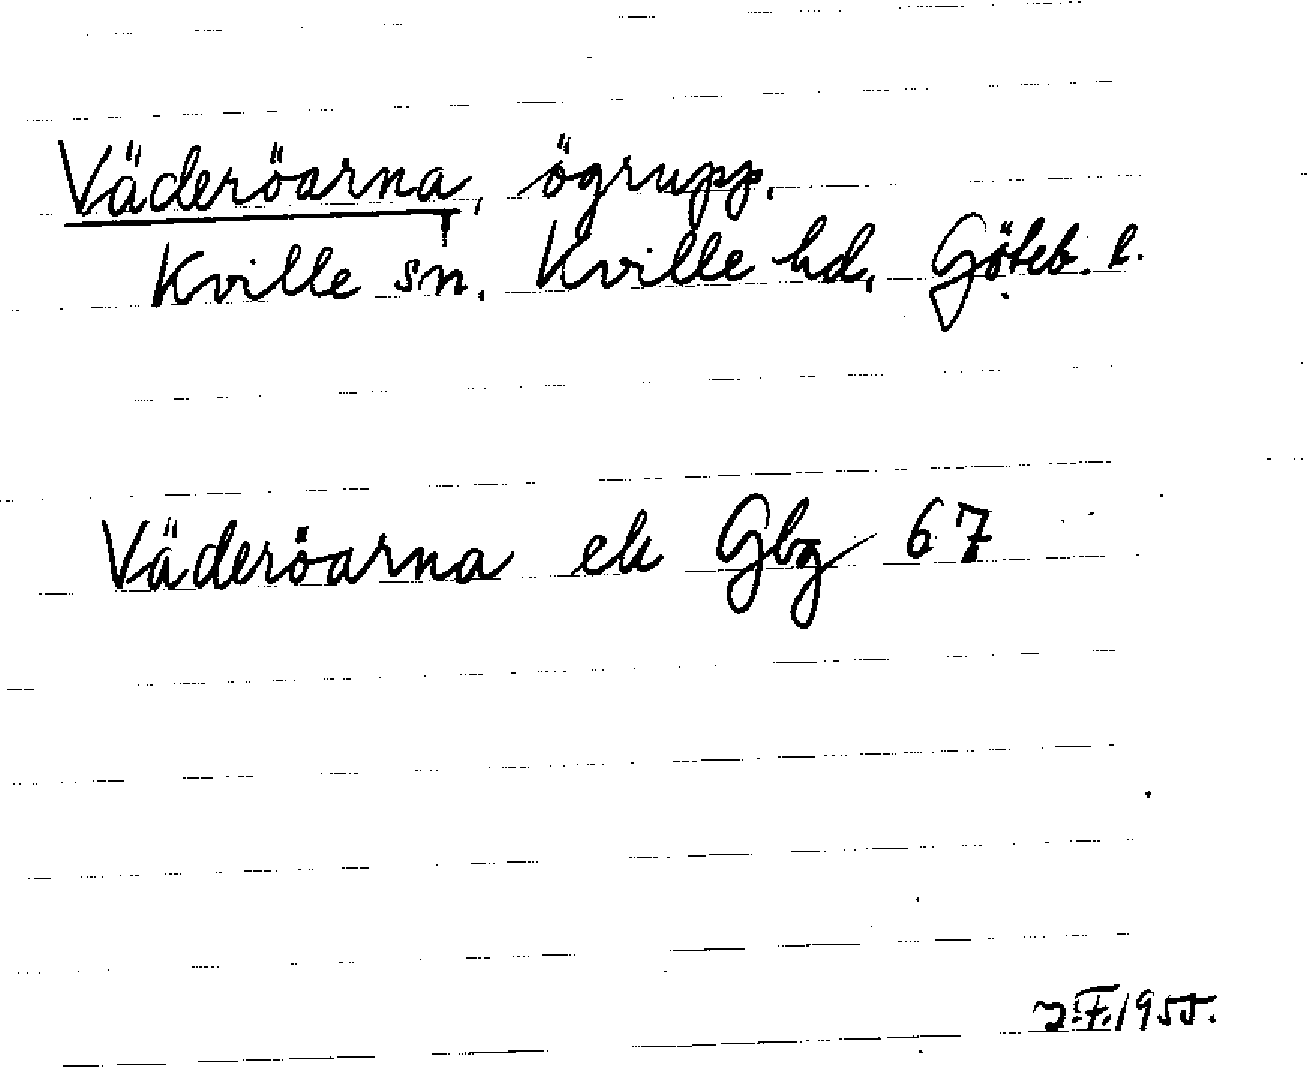 Väderöarna, ögrupp.
Kville sn. Kville hd. Göteb. l.
Väderöarna ek Gbg 67
1955.